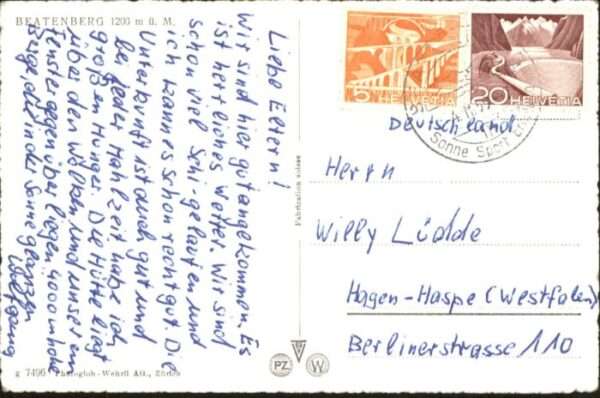 BEATENBERG 1200 m ü. M.
Liebe Eltern!
Wir sind hier gut angekommen. Es
ist herrliches Wetter. Wir sind
schon viel Schi-gelaufen und
ich kann es schon recht gut. Die
Unterkunft ist auch gut und
bei jeder Mahlzeit habe ich
großen Hunger. Die Hütte liegt
über den Wolken und unserem
Fenster gegenüber liegen 4000 m hohe
Berge, die in der Sonne glänzen
Wolfgang
g 7496 Photoglob-Wehrli AG., Zürich
Fabrication suisse
PZ
W
5 HELVETIA
20 HELVETIA
Sonne Sport
Deutschland
Herrn
Willy Lüdde
Hagen-Haspe (Westfalen)
Berlinerstrasse 110